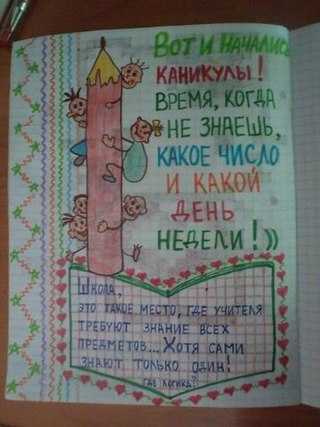 ВОТ И НАЧАЛИСЬ
КАНИКУЛЫ!
ВРЕМЯ, КОГДА
НЕ ЗНАЕШЬ,
КАКОЕ ЧИСЛО
И КАКОЙ
ДЕНЬ
НЕДЕЛИ!))
ШКОЛА,
ЭТО ТАКОЕ МЕСТО, ГДЕ УЧИТЕЛЯ
ТРЕБУЮТ ЗНАНИЕ ВСЕХ
ПРЕДМЕТОВ... ХОТЯ САМИ
ЗНАЮТ ТОЛЬКО ОДИН!
ГДЕ ЛОГИКА?